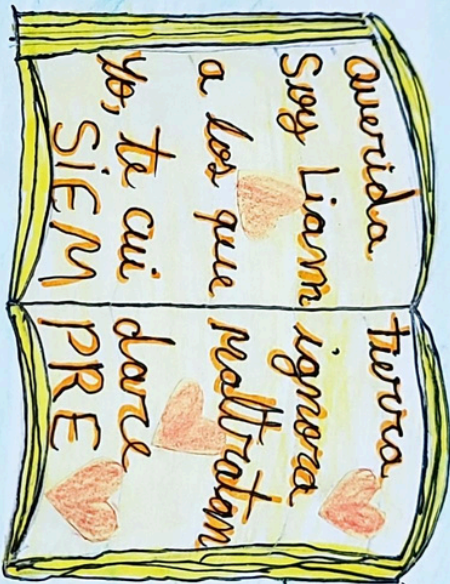 querida tierra
Soy Liam ignora
a los que maltratan
Yo, te cui dare
SiEM PRE